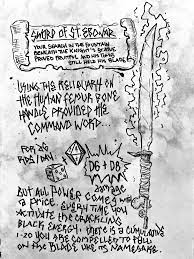 SWORD OF ST. EEGWAR
YOUR SEARCH IN THE FOUNTAIN
BENEATH THE KNIGHT'S STATUE
PROVED FRUITFUL AND HIS THERE
STILL HELD HIS BLADE
USING THE RELIQUARY ON
THE HUMAN FEMUR BONE
HANDLE, PROVIDED THE
COMMAND WORD...
FOR D6
RDS/DAY
D6 + D8
DAMAGE
BUT ALL POWER COMES W/
A PRICE. EVERY TIME YOU
ACTIVATE THE CRACKLING
BLACK ENERGY, THERE IS A CUMULATIVE
1-20 YOU ARE COMPELLED TO FALL
ON THE BLADE LIKE ITS NAMESAKE.